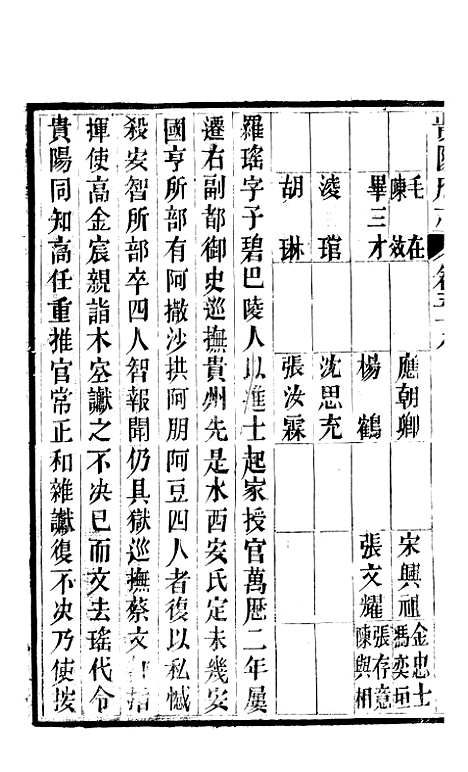 毛在
陳效
應朝卿
宋興祖
金忠士
馮奕垣
畢三才
楊鶴
張文耀
張存意
陳與相
淩琯
沈思充
胡琳
張汝霖
羅瑤字子碧巴陵人以進士起家授官萬厯二年屢
遷右副都御史巡撫貴州先是水西安氏定未幾安
國亨所部有阿撒沙拱阿朋阿豆四人者復以私憾
殺安智所部卒四人智報聞仍具獄巡撫蔡文指
揮使高金宸親詣木空讞之不決已而文去瑤代令
貴陽同知高任重推官常正和雜讞復不决乃使按